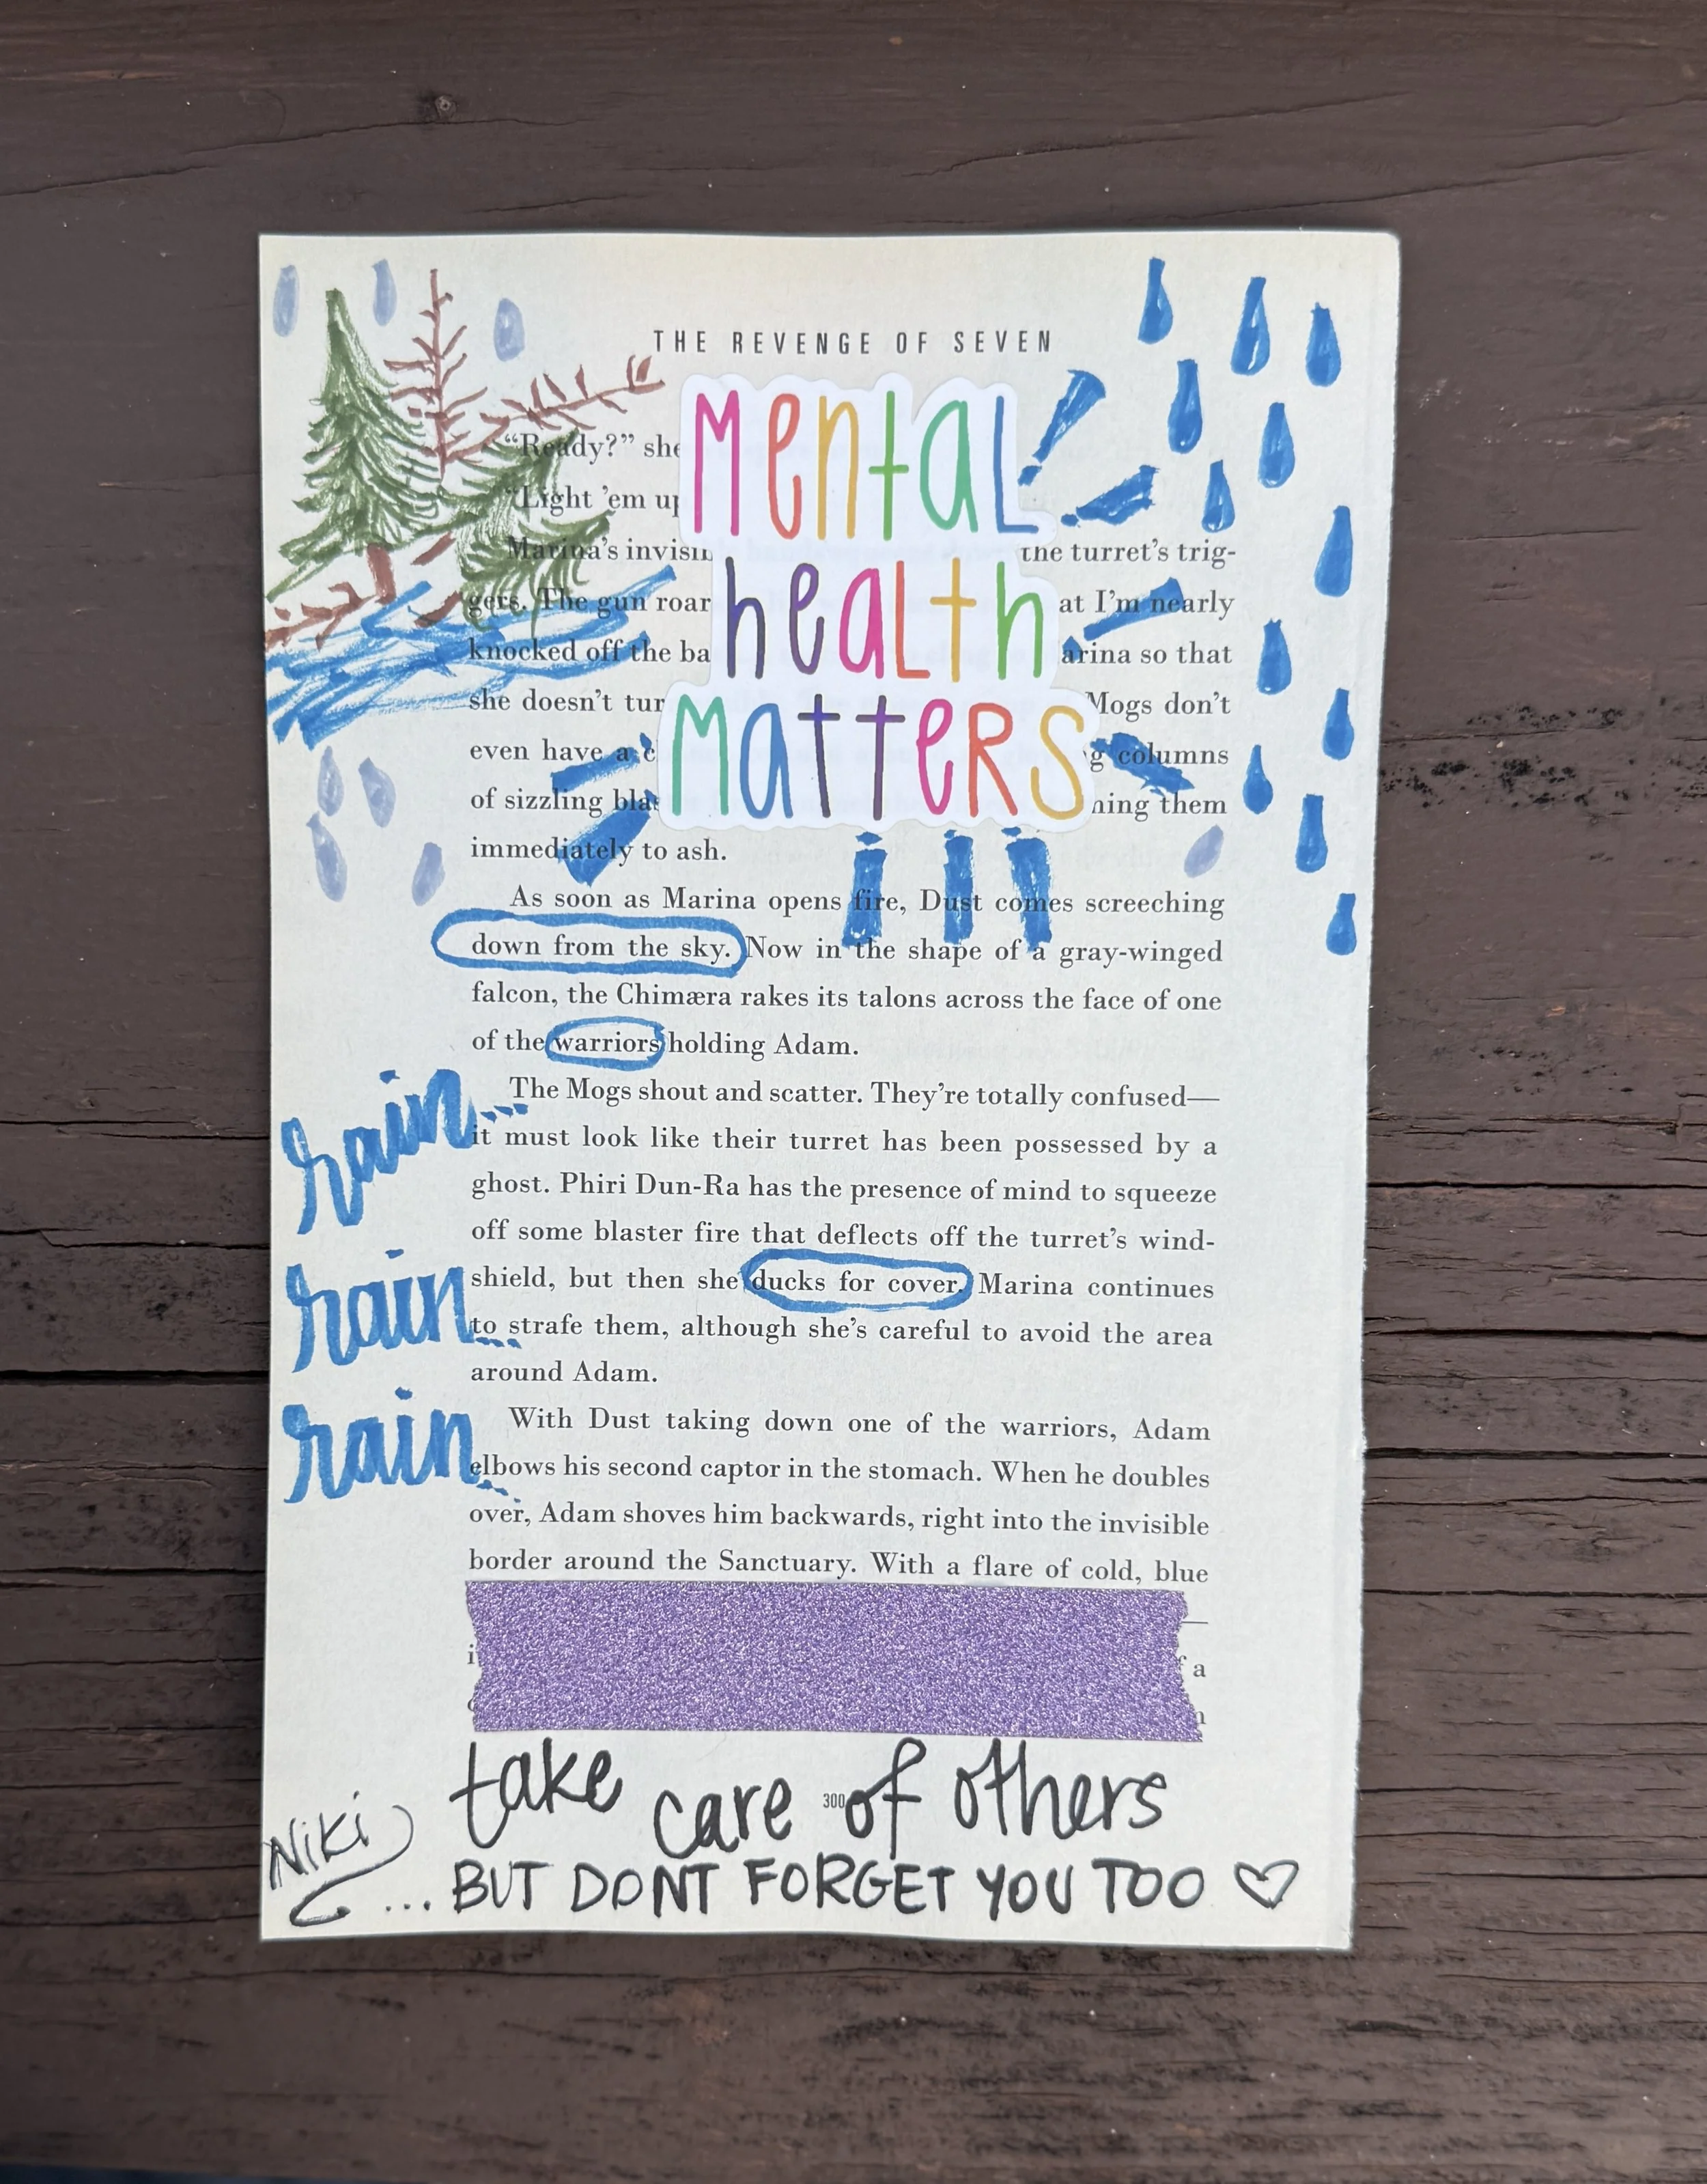 THE REVENGE OF SEVEN
mental
health
matters
“Ready?” she
“Light ’em up
Marina’s the turret’s trig-
gers. The gun roar at I’m nearly
knocked off the ba arina so that
she doesn’t tur Mogs don’t
even have a c g columns
of sizzling bla ning them
immediately to ash.
As soon as Marina opens fire, Dust comes screeching
down from the sky. Now in the shape of a gray-winged
falcon, the Chimæra rakes its talons across the face of one
of the warriors holding Adam.
rain...
The Mogs shout and scatter. They’re totally confused—
it must look like their turret has been possessed by a
ghost. Phiri Dun-Ra has the presence of mind to squeeze
off some blaster fire that deflects off the turret’s wind-
rain...
shield, but then she ducks for cover. Marina continues
to strafe them, although she’s careful to avoid the area
around Adam.
rain...
With Dust taking down one of the warriors, Adam
elbows his second captor in the stomach. When he doubles
over, Adam shoves him backwards, right into the invisible
border around the Sanctuary. With a flare of cold, blue
a
take care of others
300
Niki
... BUT DONT FORGET YOU TOO ♡